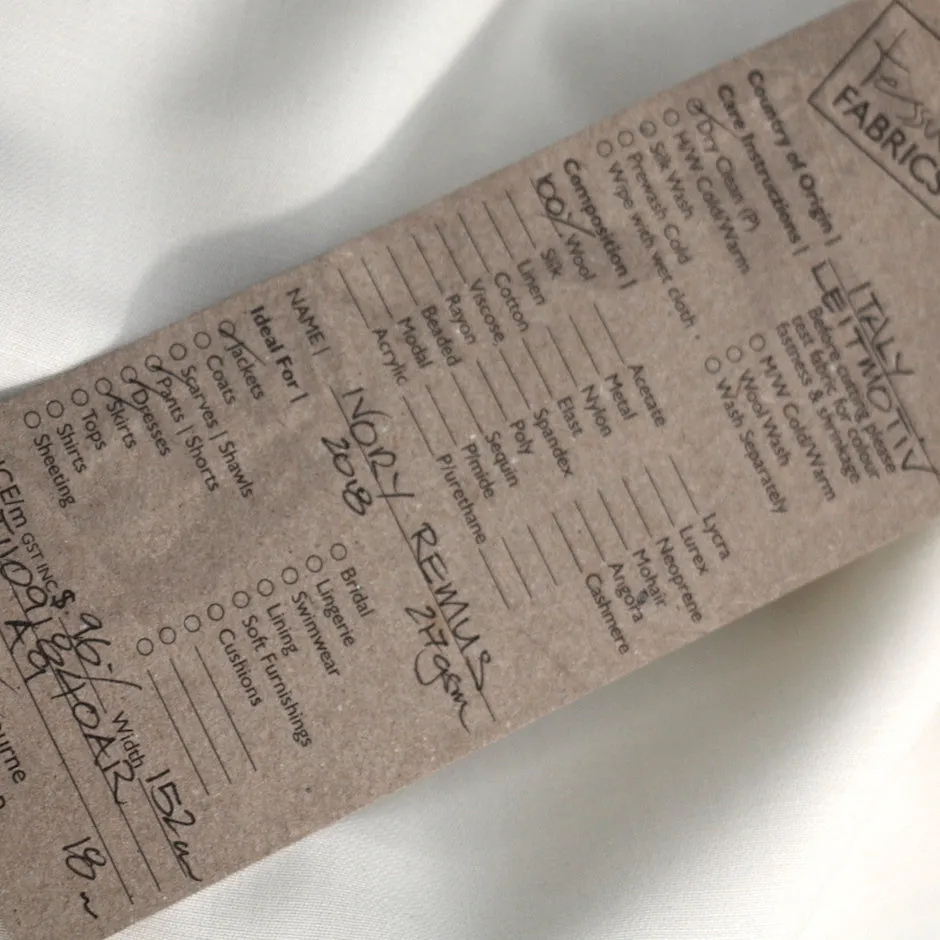 FABRICS
Country of Origin | ITALY
LEITMOTIV
Care Instructions |
Before cutting please
test fabric for colour
fastness & shrinkage
Dry Clean (P)
H/W Cold/Warm
Silk Wash
Prewash Cold
Wipe with wet cloth
M/W Cold/Warm
Wool Wash
Wash Separately
Composition |
100% Wool
Silk
Linen
Cotton
Viscose
Rayon
Beaded
Modal
Acrylic
Acetate
Metal
Nylon
Elast
Spandex
Poly
Sequin
Pimide
Plurethane
Lycra
Lurex
Neoprene
Mohair
Angora
Cashmere
NAME | IVORY REMUS
2018 217gsm
Ideal For |
Jackets
Coats
Scarves | Shawls
Pants | Shorts
Dresses
Skirts
Tops
Shirts
Sheeting
Bridal
Lingerie
Swimwear
Lining
Soft Furnishings
Cushions
CE/m GST INC $ 96.- Width 152
18